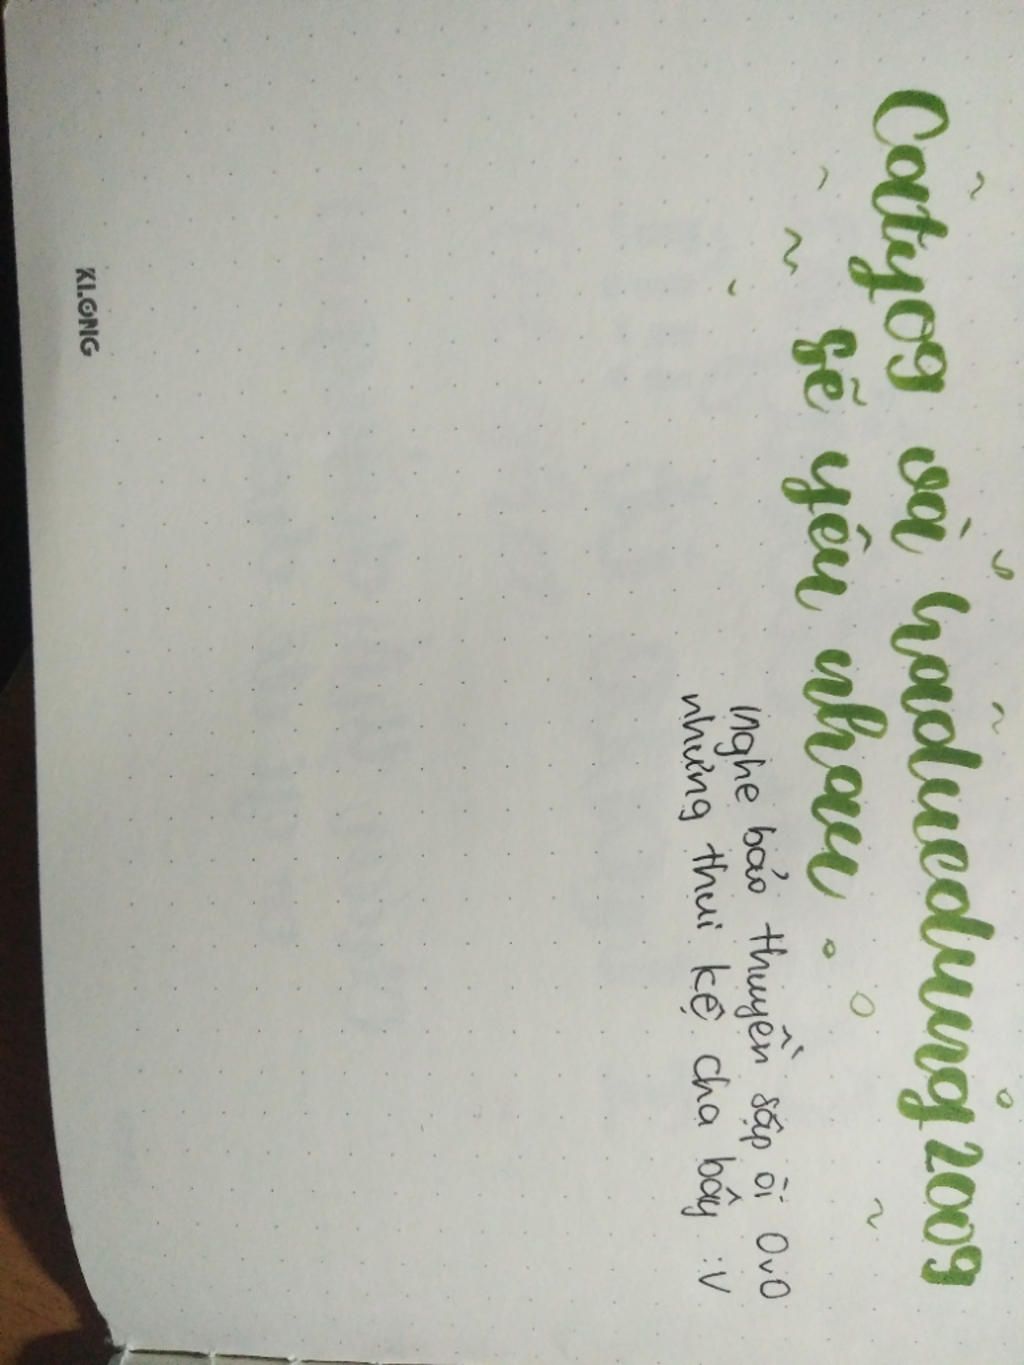 Caty09 và haducdung2009
sẽ yêu nhau.
Nghe bảo thuyền sập òi 0v0
nhưng thui kệ cha bây :V
KLONG